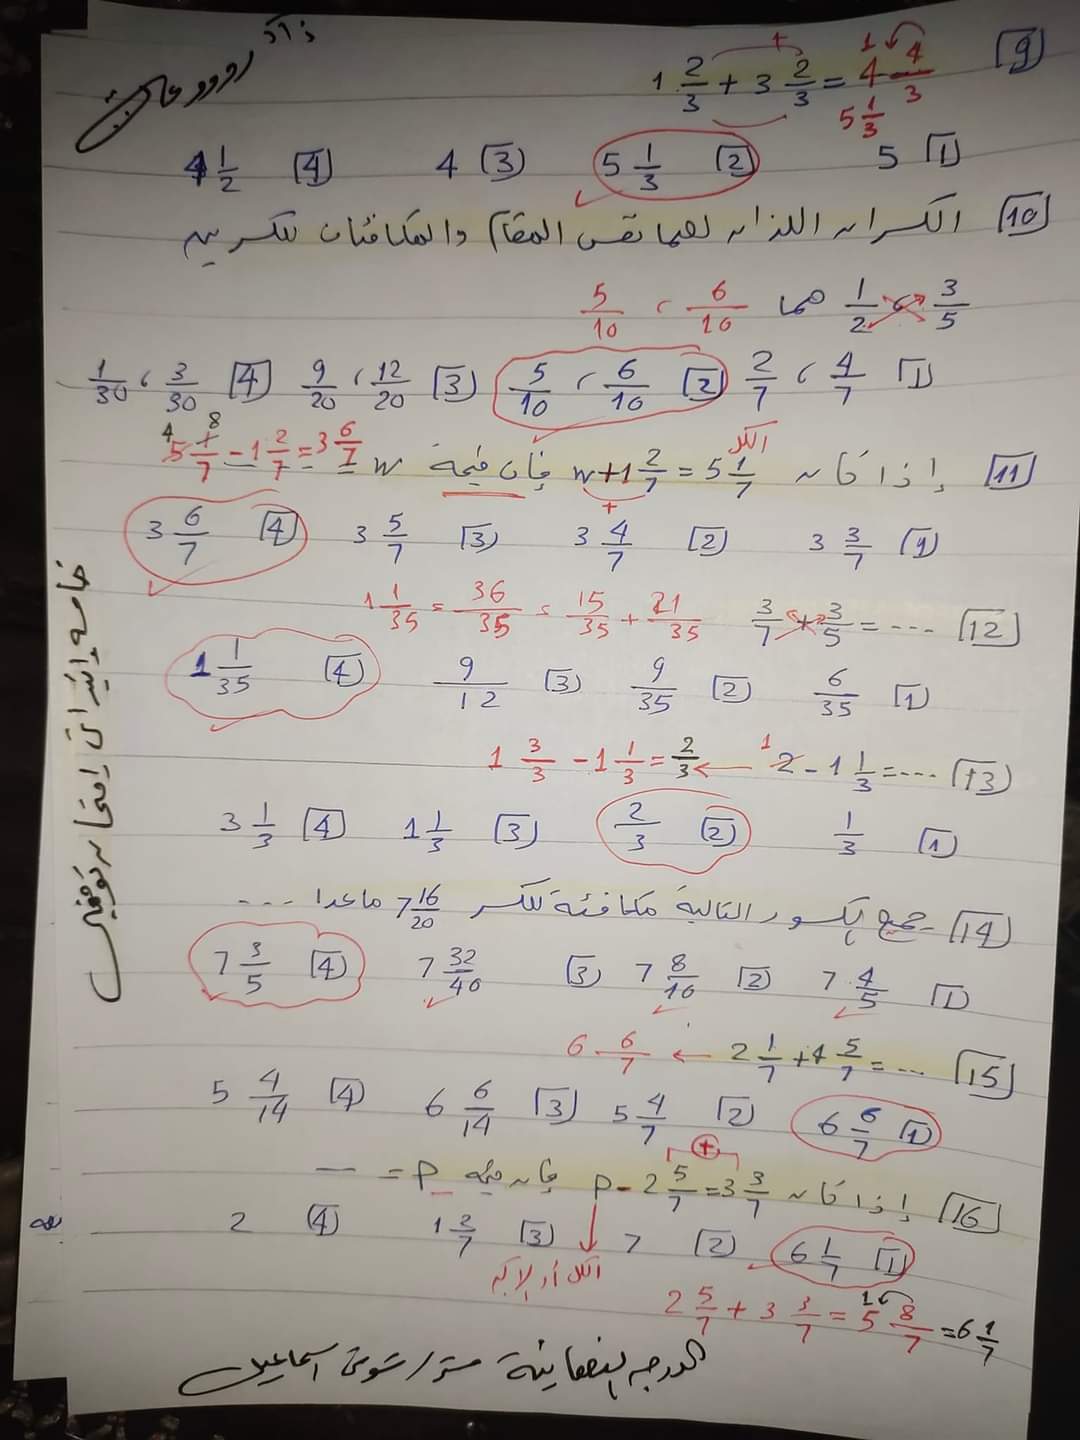 [9] 1 2/3 + 3 2/3 = 4 4/3
5 1/3
[1] 5 [2] 5 1/3 [3] 4 [4] 4 1/2
[10] الكسران اللذان لهما نفس المقام والمكافئان للكسرين
3/5 ، 1/2 هما 6/10 ، 5/10
[1] 4/7 ، 2/7 [2] 6/10 ، 5/10 [3] 12/20 ، 9/20 [4] 3/30 ، 1/30
الكل
[11] إذا كان w + 1 2/7 = 5 1/7 فإن قيمة w 5 1/7 - 1 2/7 = 3 6/7
[1] 3 3/7 [2] 3 4/7 [3] 3 5/7 [4] 3 6/7
[12] 3/7 + 3/5 = ... 21/35 + 15/35 = 36/35 = 1 1/35
[1] 6/35 [2] 9/35 [3] 9/12 [4] 1 1/35
[13] 2 - 1 1/3 = ... ← 1 3/3 - 1 1/3 = 2/3
[1] 1/3 [2] 2/3 [3] 1 1/3 [4] 3 1/3
[14] جميع الكسور التالية مكافئة للكسر 7 16/20 ماعدا ...
[1] 7 4/5 [2] 7 8/10 [3] 7 32/40 [4] 7 3/5
[15] 2 1/7 + 4 5/7 = ... ← 6 6/7
[1] 6 6/7 [2] 5 4/7 [3] 6 6/14 [4] 5 4/14
[16] إذا كان p - 2 5/7 = 3 3/7 فإن قيمة p = ...
[1] 6 1/7 [2] 7 [3] 1 2/7 [4] 2
الكل أو الأكبر
2 5/7 + 3 3/7 = 5 8/7 = 6 1/7
الدرجة النهائية مستر / شوقى اسماعيل